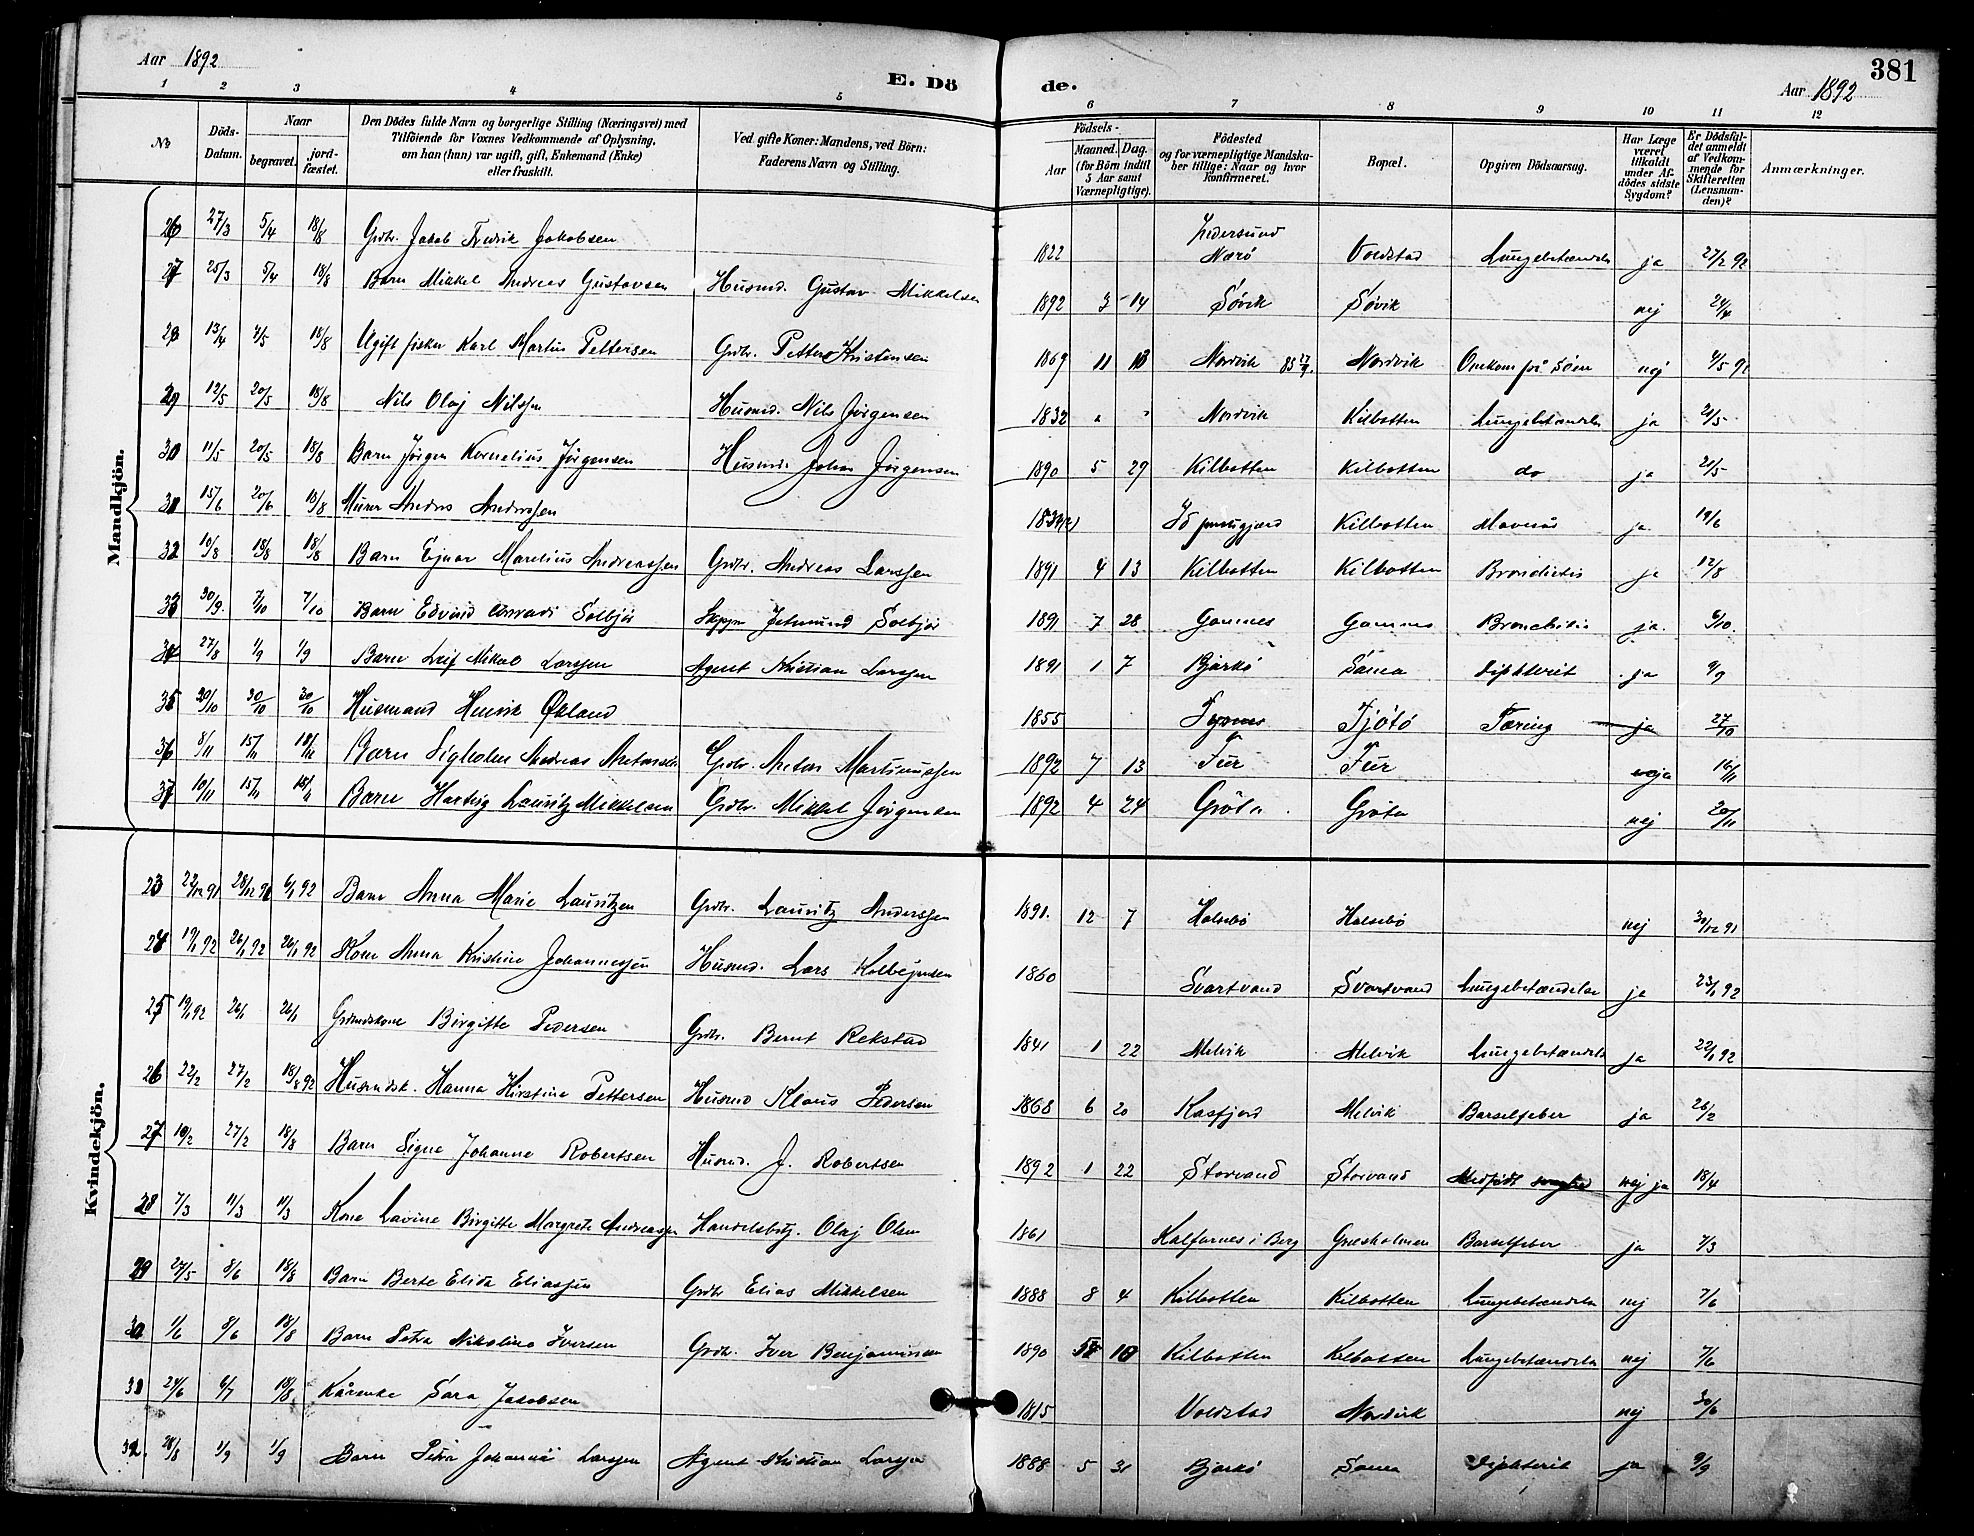 Aar 1892
E. Dö
de.
Aar 1892
381
1 2 3 4 5 6 7 8 9 10 11 12
No
Döds-Datum.
Naar
begravet.
jord-fæstet.
Den Dödes fulde Navn og borgerlige Stilling (Næringsvei) med
Tilföiende for Voxnes Vedkommende af Oplysning,
om han (hun) var ugift, gift, Enkemand (Enke)
eller fraskilt.
Ved gifte Koner: Mandens, ved Börn:
Faderens Navn og Stilling.
Födsels-
Aar
Maaned. Dag.
(for Börn indtil
5 Aar samt
Værnepligtige).
Födested
og for værnepligtige Mandska-
ber tillige: Naar og hvor
konfirmeret.
Bopæl.
Opgiven Dödsaarsag.
Har Læge
været
tilkaldt
under Af-
dödes sidste
Sygdom?
Er Dödsfal-
det anmeldt
af Vedkom-
mende for
Skifteretten
(Lensman-
den)?
Anmærkninger.
Mandkjön.
26 27/3 5/4 18/8 Grdbr. Jakob Fredrik Jakobsen 1822 Nærö Voldstad Lungebetændelse ja 27/2 92
27 25/3 5/4 18/8 Barn Mikkel Andreas Gustavsen Husmd. Gustav Mikkelsen 1892 3 14 Sövik Sövik nej 24/4
28 13/4 4/5 18/8 Ugift fisker Karl Martin Pettersen Grdbr. Petter Kristensen 1869 11 Nordvik Nordvik Omkom på Söen nej 4/5 92
29 12/5 20/5 18/8 Nils Olaj Nilssen Husmd. Nils Jörgensen 1832 " " Nordvik Kilbotten Lungebetændelse ja 21/5
30 11/5 20/5 18/8 Barn Jörgen Kornelius Jörgensen Husmd. Johan Jörgensen 1890 5 29 Kilbotten Kilbotten do ja 21/5
31 15/6 20/6 18/8 Murer Andres Andersen Kilbotten Mavesår ja 19/6
32 10/8 18/8 18/8 Barn Ejnar Marelius Andreassen Grdbr. Andreas Larssen 1891 4 13 Kilbotten Kilbotten Bronchitis ja 12/8
33 30/9 7/10 7/10 Barn Edvard Konradi Solbjör Solbjör 1891 7 28 Gamnes Gamnes Bronchitis ja 6/10
34 27/8 1/9 1/9 Barn Leif Mikal Larssen Agent Kristian Larssen 1891 1 7 Bjarkö Sama Diphterit ja 9/9
35 20/10 30/10 30/10 Husmand Henrik Økland 1855 Tysnes Tjötö Tæring ja 27/10
36 8/11 15/11 18/11 Barn Sigholm Andreas Antonsen Grdbr. Anton Martinussen 1892 7 13 Fur Fur ja 16/11
37 10/11 15/11 15/11 Barn Hartvig Lauritz Mikkelsen Grdbr. Mikkel Jörgensen 1892 4 24 Gröta Gröta nej 20/11
Kvindekjön.
23 22/12 91 28/12 91 6/1 92 Barn Anna Marie Lauritzen Grdbr. Lauritz Anderssen 1891. 12 7 Halsebö Halsebö nej 30/12 91
24 19/1 92 26/1 92 26/1 92 Kone Anna Kristine Johannessen Husmd. Lars Kolbejnsen 1860 Svartvand Svartvand Lungebetændelse ja 23/1 92
25 19/1 92 26/1 26/1 Grdmdskone Birgitte Pedersen Grdbr. Bernt Rekstad 1841 1 22 Melvik Melvik Lungebetændelse ja 22/1 92
26 22/2 27/2 18/8 92 Husmdsk. Hanna Kirstine Pettersen Husmd Klaus Pedersen 1868 6 20 Kasfjord Melvik Barselfeber ja 26/2
27 19/2 27/2 18/8 Barn Signe Johanne Robertsen Husmd. J. Robertsen 1892 1 22 Storvand Storvand Medfödt svaghed nej ja 18/4
28 7/3 11/3 11/3 Kone Lavine Birgitte Margrete Andreassen Handelsbetj. Olaj Olsen 1861 Kalfarnes i Berg Gresholmen Barselfeber ja 7/3
29 27/5 8/6 18/8 Barn Berte Elida Eliassen Grdbr Elias Mikkelsen 1888 8 4 Kilbotten Kilbotten Lungebetændelse nej 7/6
30 1/6 8/6 18/8 Barn Petra Nikoline Iversen Grdbr. Iver Benjaminsen 1890 10 Kilbotten Kilbotten Lungebetændelse nej 7/6
31 24/6 6/7 18/8 Kårenke Sara Jakobsen 1815 Voldstad Nordvik nej 30/6
32. 28/8 1/9 1/9 Barn Petra Johanna Larssen Agent Kristian Larssen 1888 5 31 Bjarkö Sama Diphterit ja 9/9